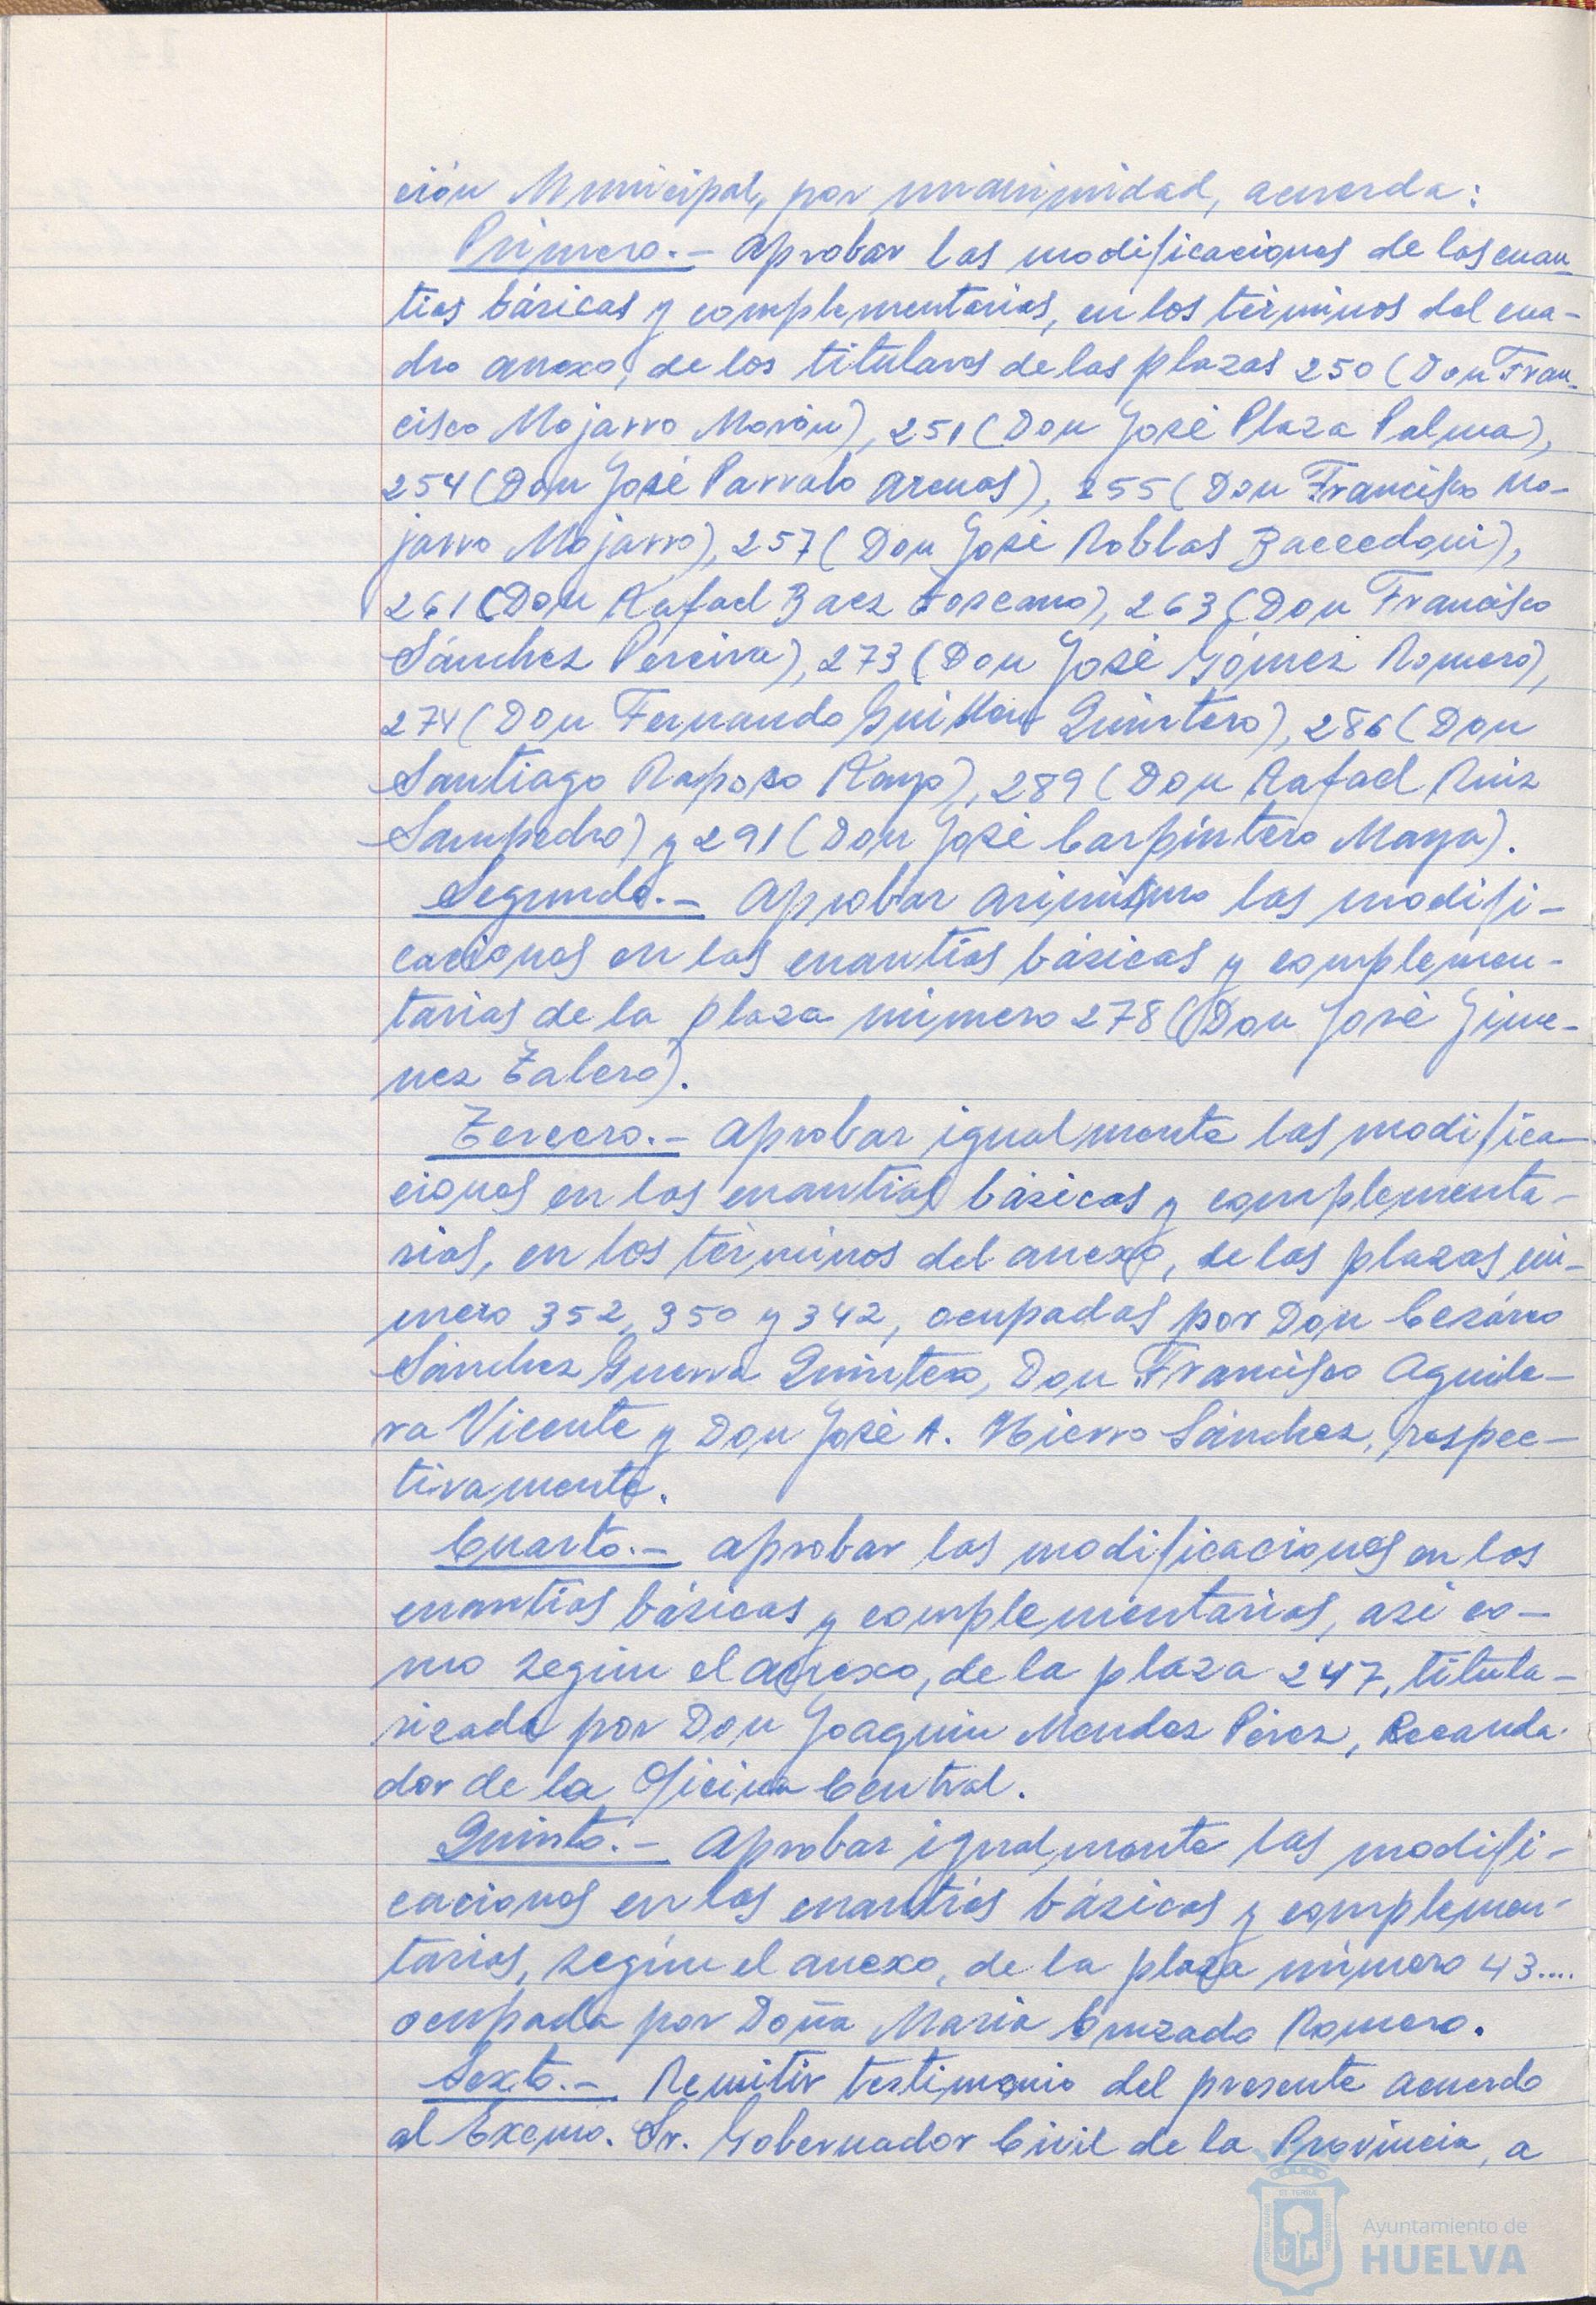 ción Municipal, por unanimidad, acuerda:
Primero.- Aprobar las modificaciones de las cuan
tias básicas y complementarias, en los términos del cua-
dro anexo, de los titulares de las plazas 250 (Don Fran-
cisco Mojarro Morón), 251 (Don José Plaza Palma),
254 (Don José Parralo Arenas), 255 (Don Francisco Mo-
jarro Mojarro), 257 (Don José Robles Baccedoni),
261 (Don Rafael Baez Toscano), 263 (Don Francisco
Sánchez Pereira), 273 (Don José Gómez Romero),
274 (Don Fernando Guillen Quintero), 286 (Don
Santiago Raposo Rayo), 289 (Don Rafael Ruiz
Sampedro) y 291 (Don José Carpintero Maya).
Segundo.- Aprobar asimismo las modifi-
caciones en las cuantías básicas y complemen-
tarias de la plaza número 278 (Don José Gime-
nez Talero).
Tercero.- Aprobar igualmente las modifica-
ciones en las cuantias básicas y complementa-
rias, en los términos del anexo, de las plazas nú-
mero 352, 350 y 342, ocupadas por Don Cesáreo
Sánchez Guerra Quintero, Don Francisco Aguile-
ra Vicente y Don José A. Hierro Sánchez, respec-
tivamente.
Cuarto.- Aprobar las modificaciones en las
cuantias básicas y complementarias, asi co-
mo según el anexo, de la plaza 247, titula-
rizada por Don Joaquin Mendez Pérez, Recauda-
dor de la Oficina Central.
Quinto.- Aprobar igualmente las modifi-
caciones en las cuantías básicas y complemen-
tarias, según el anexo, de la plaza número 43....
ocupada por Doña Maria Cruzado Romero.
Sexto.- Remitir testimonio del presente acuerdo
al Excmo. Sr. Gobernador Civil de la Provincia, a
Ayuntamiento de
HUELVA